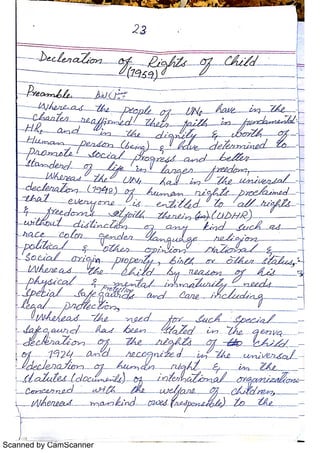 23
Decleration of Rights of Child
(1959)
Preamble:
Whereas the people of UNs have in the
charter reaffirmed their faith in fundamental
HRs and in the dignity & worth of
Human person (being) & have determined to
promote social progress and better
standerd of life in larger freedom,
Whereas the UNs has in the universal
decleration (1948) of human rights proclaimed
that everyone is entitled to all rights
& freedoms therein (UDHR)
without distinction of any kind such as
race color gender language religion
political & other opinion, national &
social origin property, birth or other status,
Whereas the child by reason of his
physical & mental immaturity needs
special safeguards protection and care including
legal protection,
Whereas the need for such special
safegaurd has been stated in the genva
decleration of the rights of child
of 1924 and recognized in the universal
decleration of human right & in the
statutes (documents) of international organizations
concerned with the welfare of children,
Whereas mankind owes (responsible) to the
Scanned by CamScanner